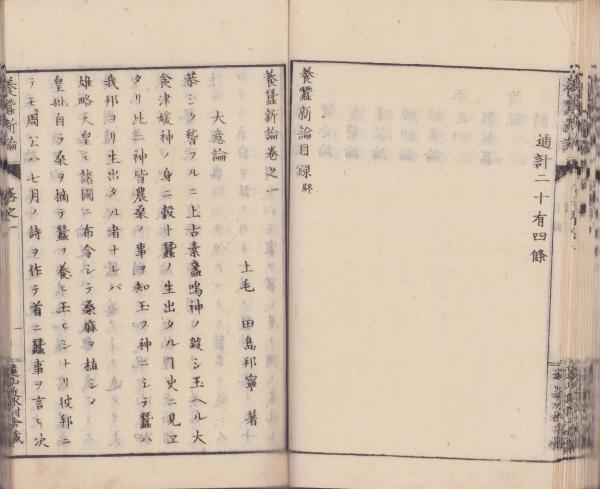 通計二十有四條
養蠶新論目録終
養蠶新論卷之一
上毛 田島邦寧 著
大意論
恭シク稽フルニ上古素盞嗚神ノ殺シ玉ヘル大
食津媛神ノ身ニ穀ト蠶ノ生出タルヿ史ニ見エ
タリ此二神皆農桑ノ事ヲ知玉ヲ神ニシテ蠶ハ
我邦ヨリ生出タル者ナレバ
雄略天皇モ諸國ニ布令シテ桑麻ヲ植シメ
皇妣自ラ桑ヲ摘テ蠶ヲ養ヒ玉ヒシナリ彼邦ニ
テモ周公ハ七月ノ詩ヲ作テ首ニ蠶事ヲ言ヒ次
養蠶新論
卷之一
一